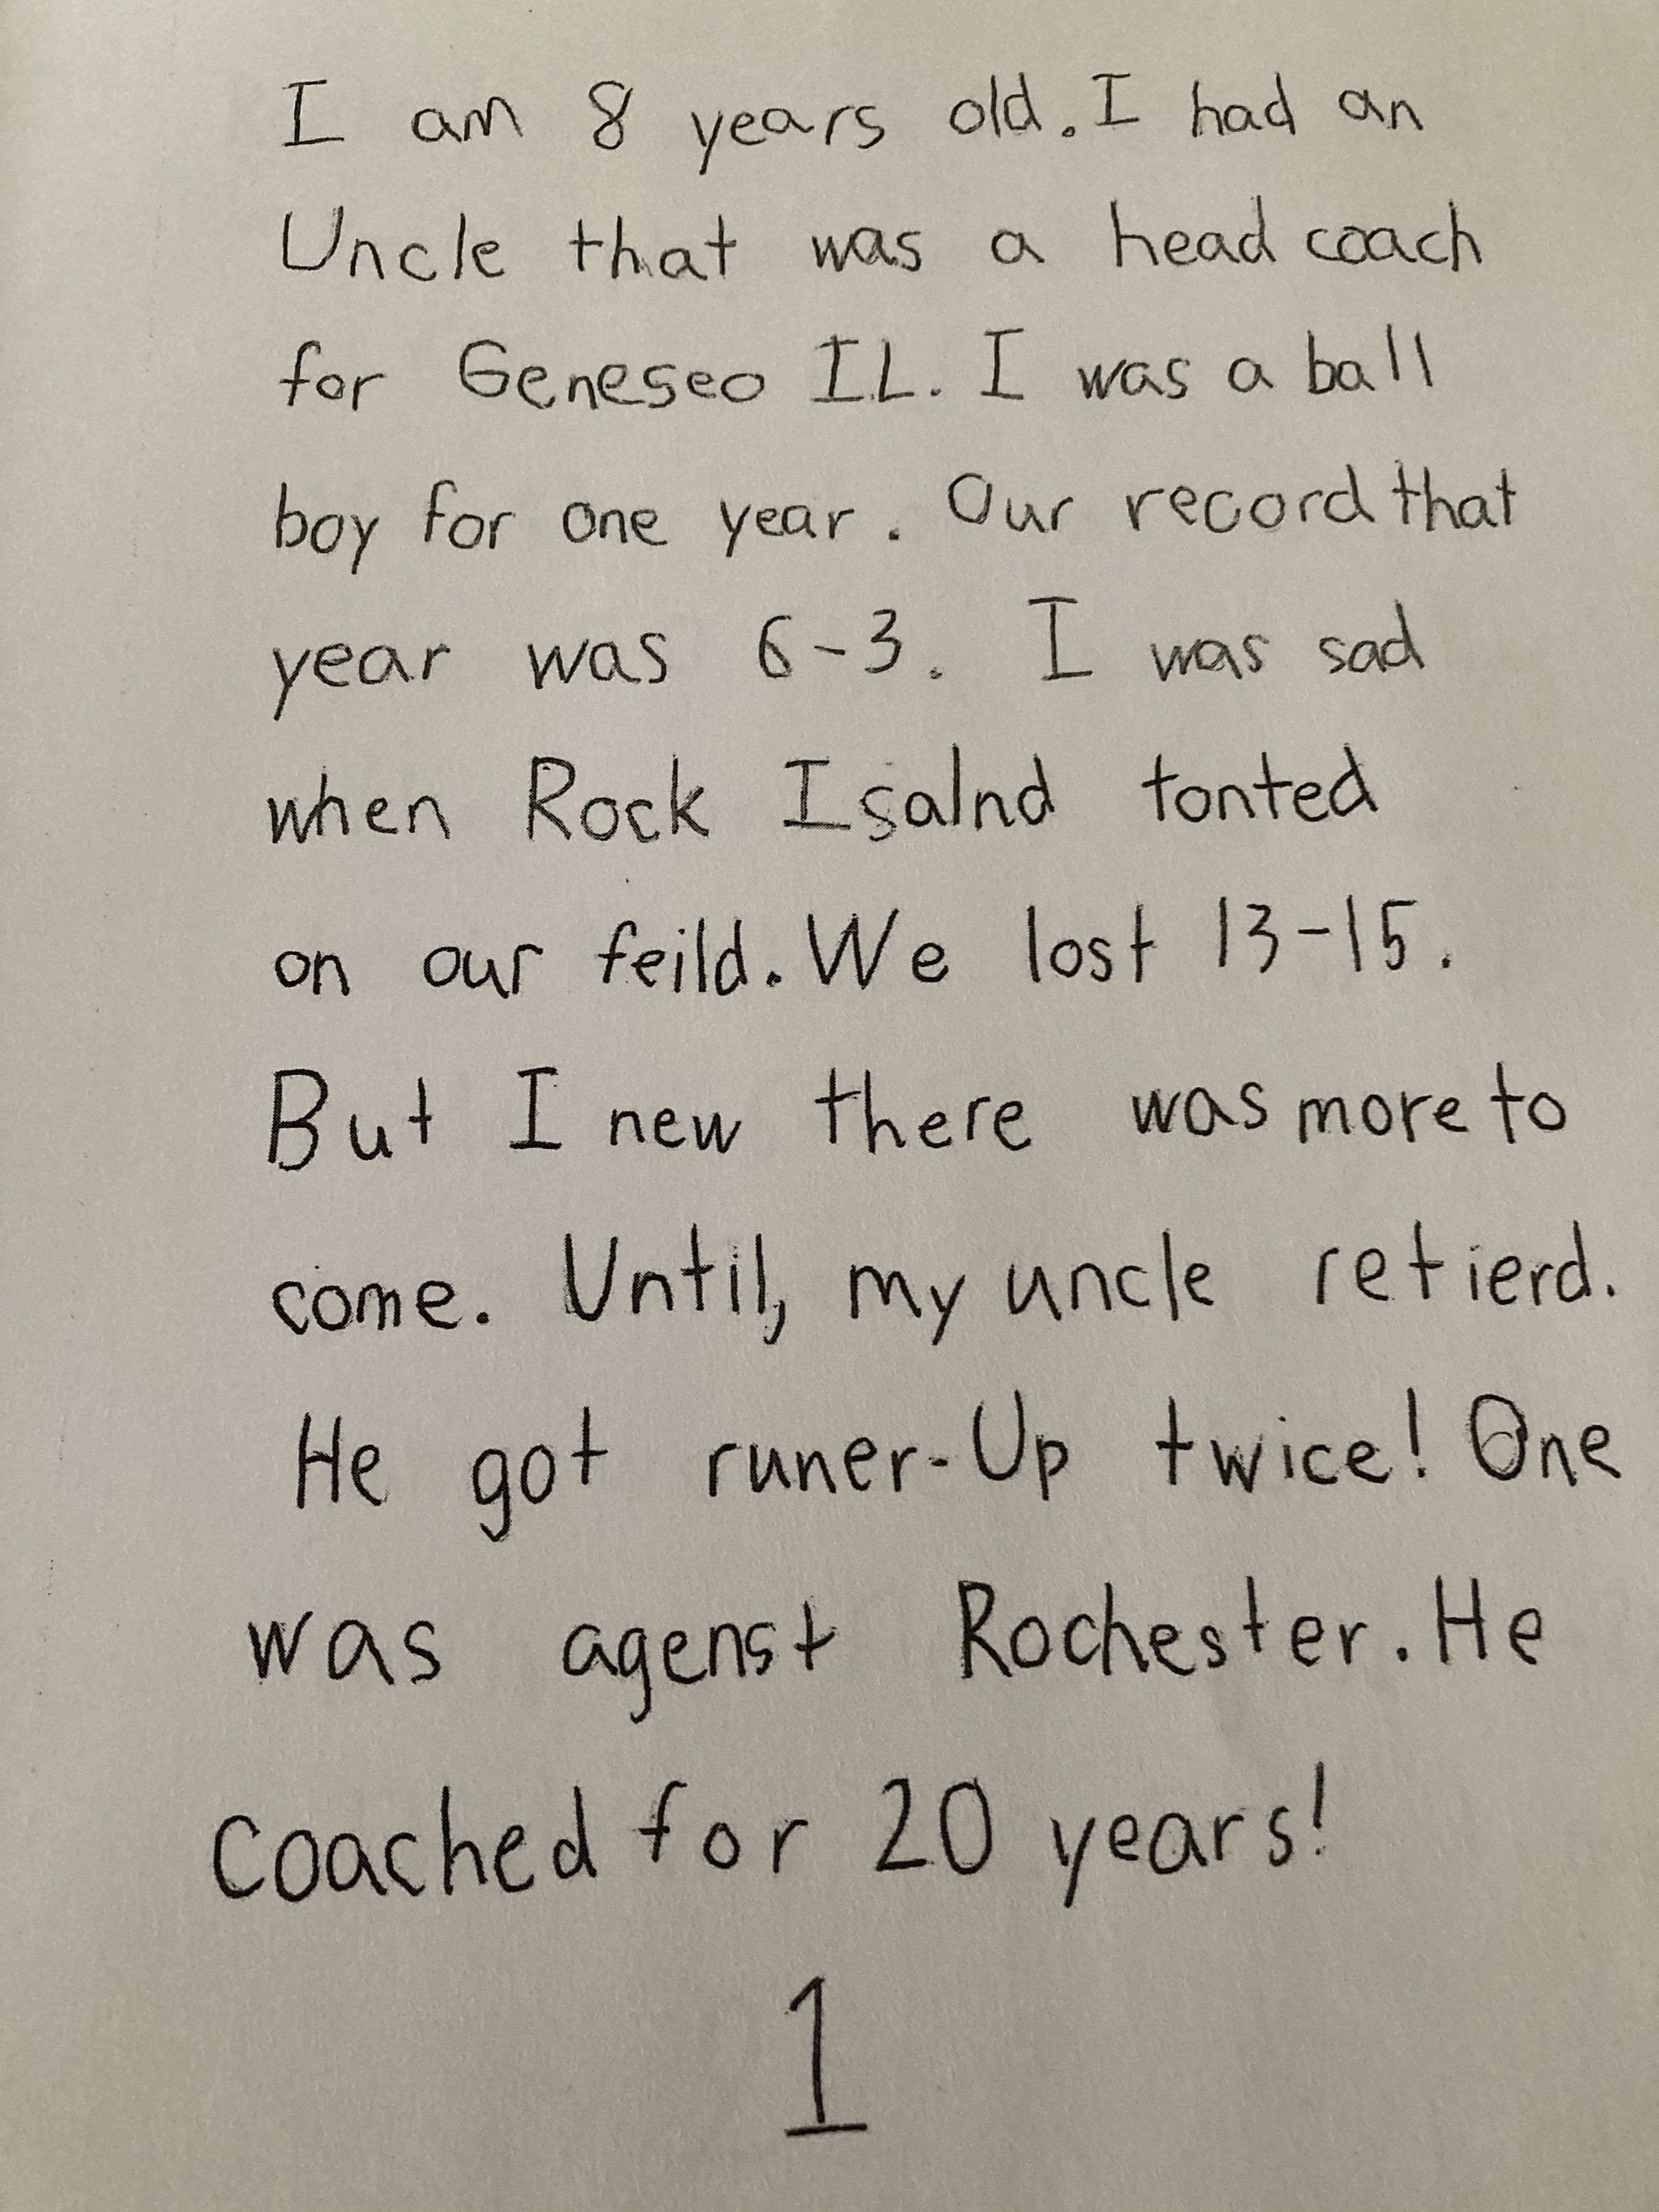 I am 8 years old. I had an
Uncle that was a head coach
for Geneseo IL. I was a ball
boy for one year. Our record that
year was 6-3. I was sad
when Rock Isalnd tonted
on our feild. We lost 13-15.
But I new there was more to
come. Until, my uncle retierd.
He got runer-Up twice! One
was agenst Rochester. He
coached for 20 years!
1